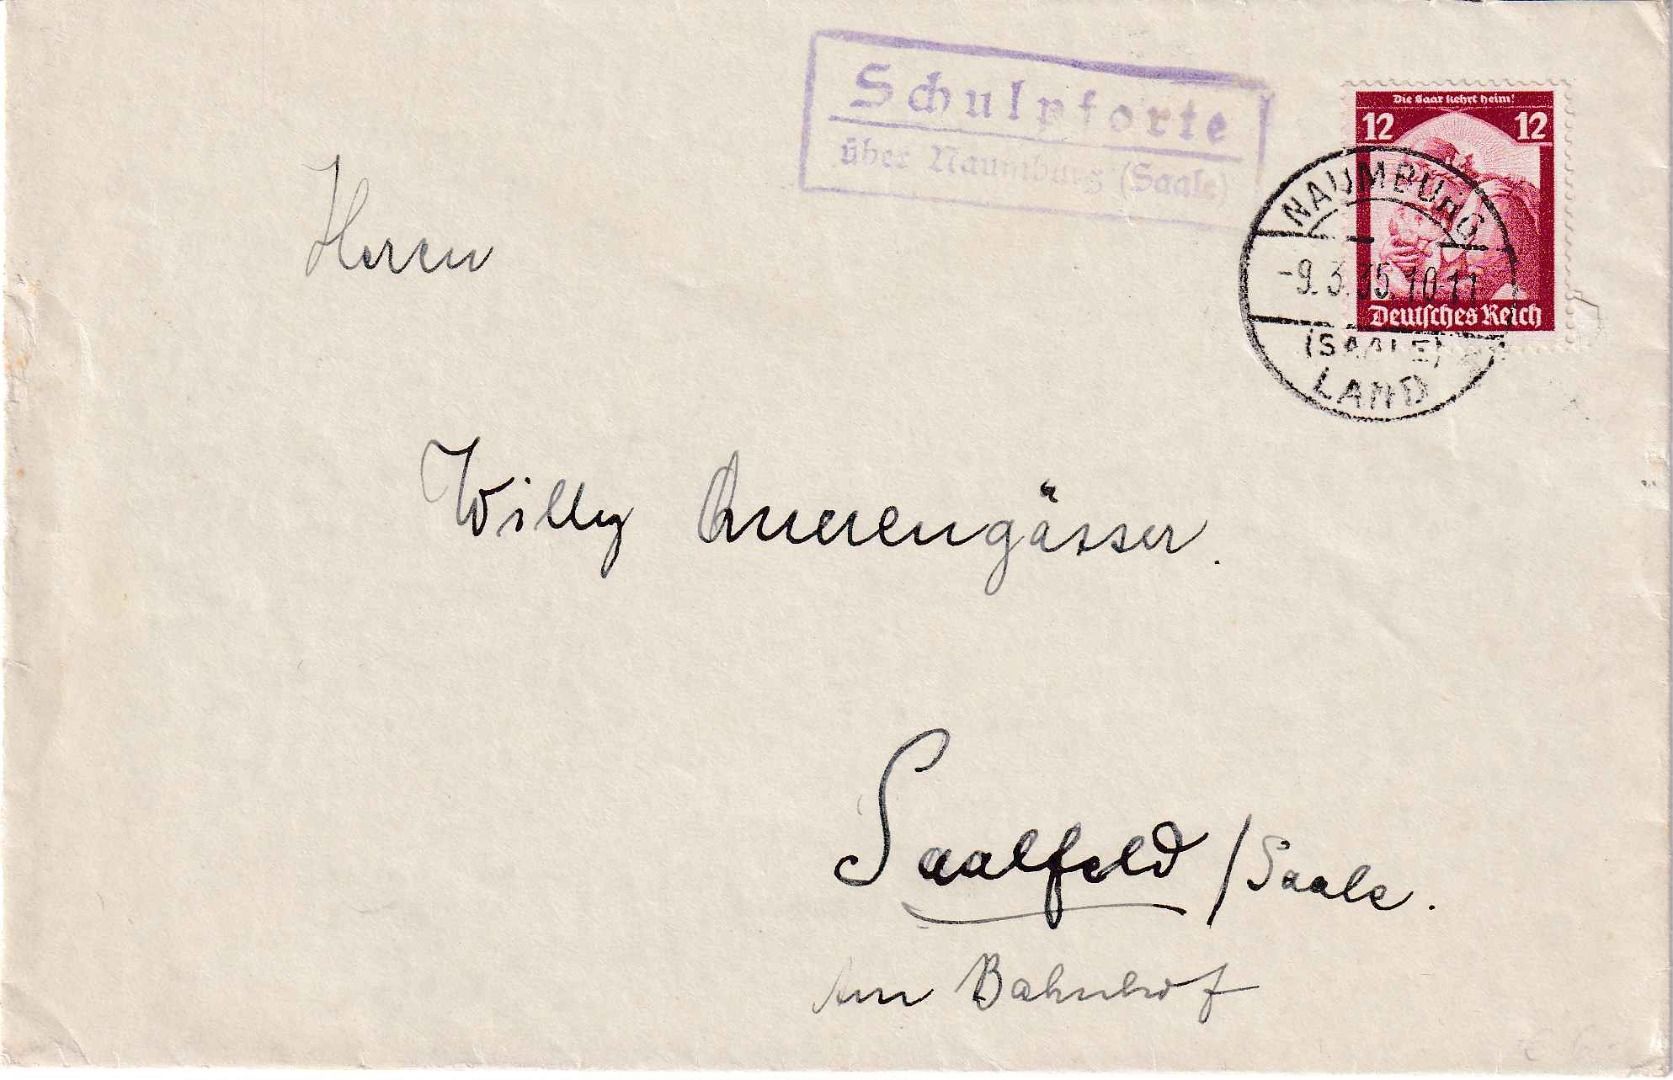 Schulpforte
über Naumburg (Saale)
Die Saar kehrt heim!
12 12
Deutsches Reich
NAUMBURG
-9.3.35.10-11
(SAALE)
LAND
Herrn
Willy Querengässer.
Saalfeld / Saale.
Am Bahnhof